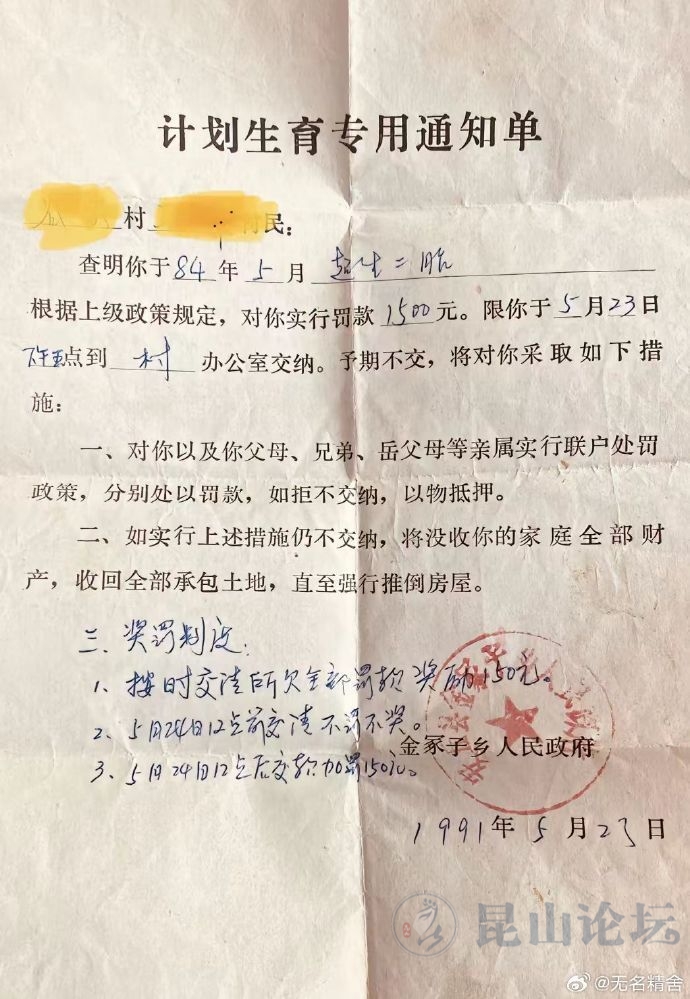 计划生育专用通知单
村 村民：
查明你于84年5月 超生二胎
根据上级政策规定，对你实行罚款1500元。限你于5月23日
下午5点到 村 办公室交纳。予期不交，将对你采取如下措
施：
一、对你以及你父母、兄弟、岳父母等亲属实行联户处罚
政策，分别处以罚款，如拒不交纳，以物抵押。
二、如实行上述措施仍不交纳，将没收你的家庭全部财
产，收回全部承包土地，直至强行推倒房屋。
三、奖罚制度：
1、按时交清所欠全部罚款奖励150元。
2、5月24日12点前交清不罚不奖。
3、5月24日12点后交款加罚150元。
金冢子乡人民政府
1991年5月23日
昆山论坛
@无名精舍